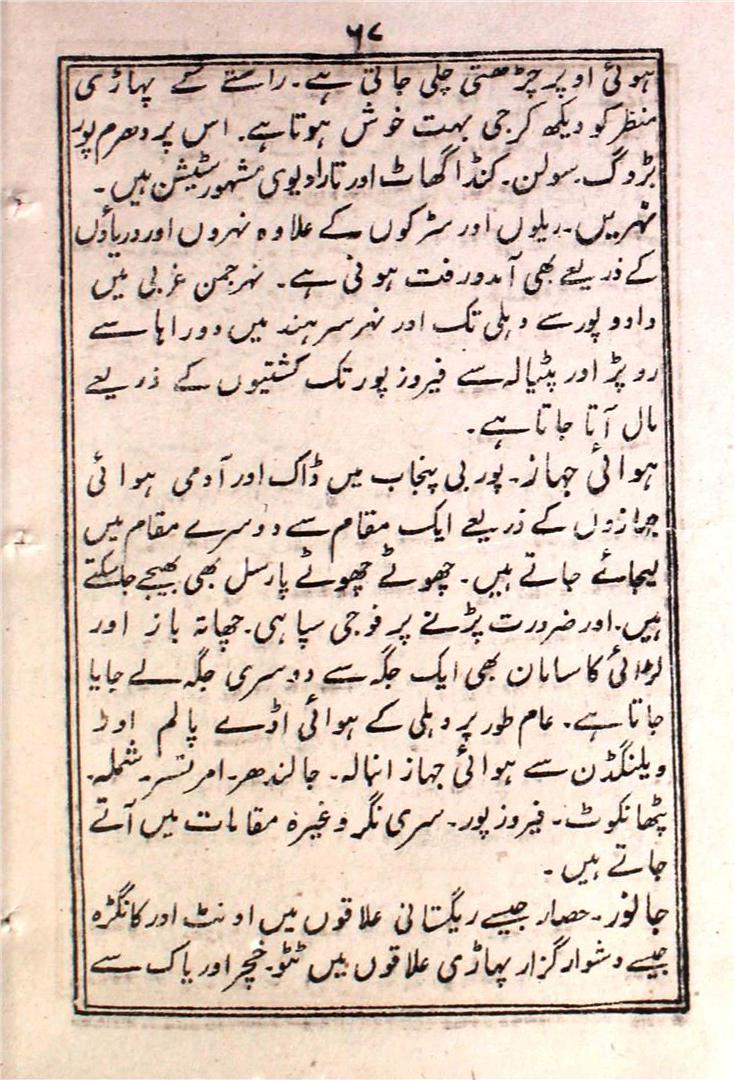 ۶۸
ہوئی اوپر چڑھتی چلی جاتی ہے۔ راستے کے پہاڑی
منظر کو دیکھ کر جی بہت خوش ہوتا ہے۔ اس پر دھرم پور
بڑوگ۔ سولن۔ کنڈا گھاٹ اور تارا دیوی مشہور سٹیشن ہیں۔
نہریں۔ ریلوں اور سڑکوں کے علاوہ نہروں اور دریاؤں
کے ذریعے بھی آمدورفت ہوتی ہے۔ نہر جمن غربی میں
دادو پور سے دہلی تک اور نہر سرہند میں دوراہا سے
روپڑ اور پٹیالہ سے فیروز پور تک کشتیوں کے ذریعے
مال آتا جاتا ہے۔
ہوائی جہاز۔ پوربی پنجاب میں ڈاک اور آدمی ہوائی
جہازوں کے ذریعے ایک مقام سے دوسرے مقام میں
لیجائے جاتے ہیں۔ چھوٹے چھوٹے پارسل بھی بھیجے جاسکتے
ہیں۔ اور ضرورت پڑنے پر فوجی سپاہی۔ چھاتہ باز اور
لڑائی کا سامان بھی ایک جگہ سے دوسری جگہ لے جایا
جاتا ہے۔ عام طور پر دہلی کے ہوائی اڈے پالم اور
ویلنگڈن سے ہوائی جہاز انبالہ۔ جالندھر۔ امرتسر۔ شملہ۔
پٹھانکوٹ۔ فیروز پور۔ سری نگر وغیرہ مقامات میں آتے
جاتے ہیں۔
جانور۔ حصار جیسے ریگستانی علاقوں میں اونٹ اور کانگڑہ
جیسے دشوار گزار پہاڑی علاقوں میں ٹٹو۔ خچر اور یاک سے